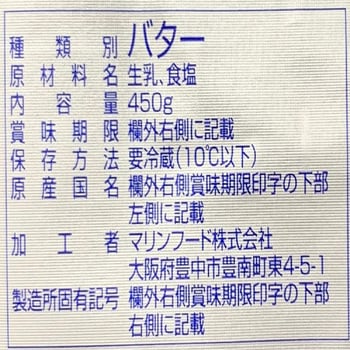 種類別 バター
原材料名 生乳、食塩
内容量 450g
賞味期限 欄外右側に記載
保存方法 要冷蔵(10℃以下)
原産国名 欄外右側賞味期限印字の下部
左側に記載
加工者 マリンフード株式会社
大阪府豊中市豊南町東4-5-1
製造所固有記号 欄外右側賞味期限印字の下部
右側に記載